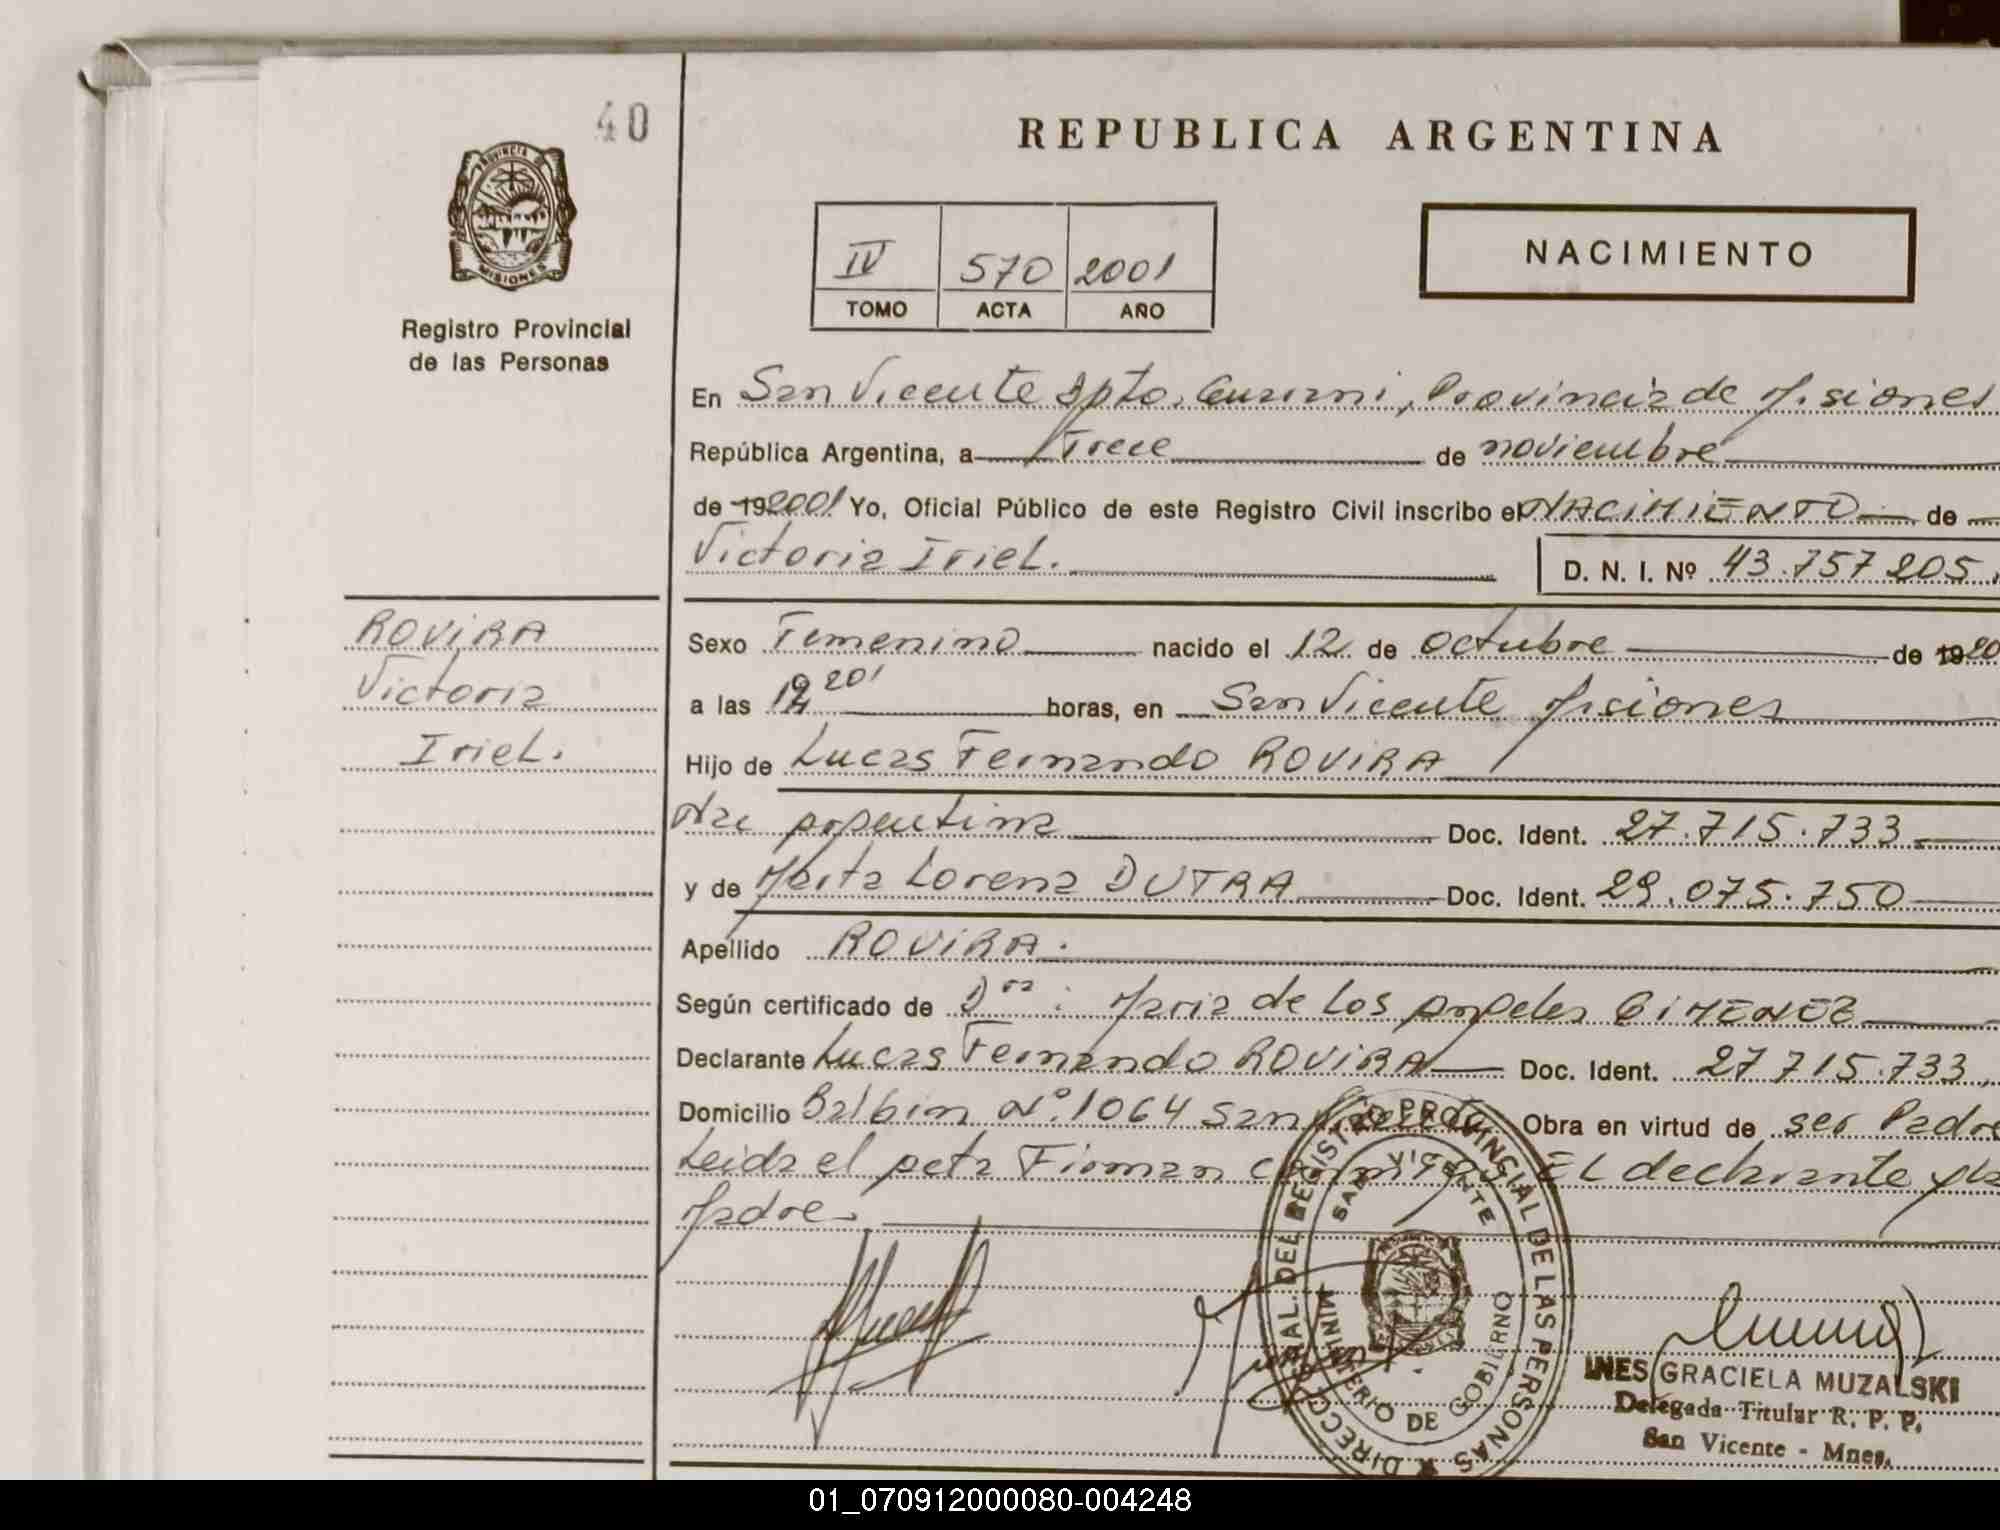 40
REPUBLICA ARGENTINA
PROVINCIA D
MISIONES
Registro Provincial
de las Personas
IV 570 2001
TOMO ACTA AÑO
NACIMIENTO
En San Vicente Dpto. Guarani, Provincia de Misiones
República Argentina, a Trece de noviembre
de 19 2001 Yo, Oficial Público de este Registro Civil inscribo el NACIMIENTO de
Victoria Iriel. D. N. I. Nº 43.757 205.
ROVIRA
Victoria
Iriel.
Sexo Femenino nacido el 12 de octubre de 19 20
a las 20 horas, en San Vicente Misiones
Hijo de Lucas Fernando ROVIRA
Nac argentina Doc. Ident. 27.715.733
y de Marta Lorena DUTRA Doc. Ident. 29.075.750
Apellido ROVIRA.
Según certificado de Dra: Maria de los Angeles GIMENEZ
Declarante Lucas Fernando ROVIRA Doc. Ident. 27 715.733,
Domicilio Balbin Nº 1064 San Vicente Obra en virtud de ser Padre
Leida el acta Firman conmigo EL declarante y la
Madre.
DIRECC GRAL. DEL REGISTRO PROVINCIAL DE LAS PERSONAS
SAN VICENTE
MINISTERIO DE GOBIERNO
INES GRACIELA MUZALSKI
Delegada Titular R. P. P.
San Vicente - Mnes.
01_070912000080-004248